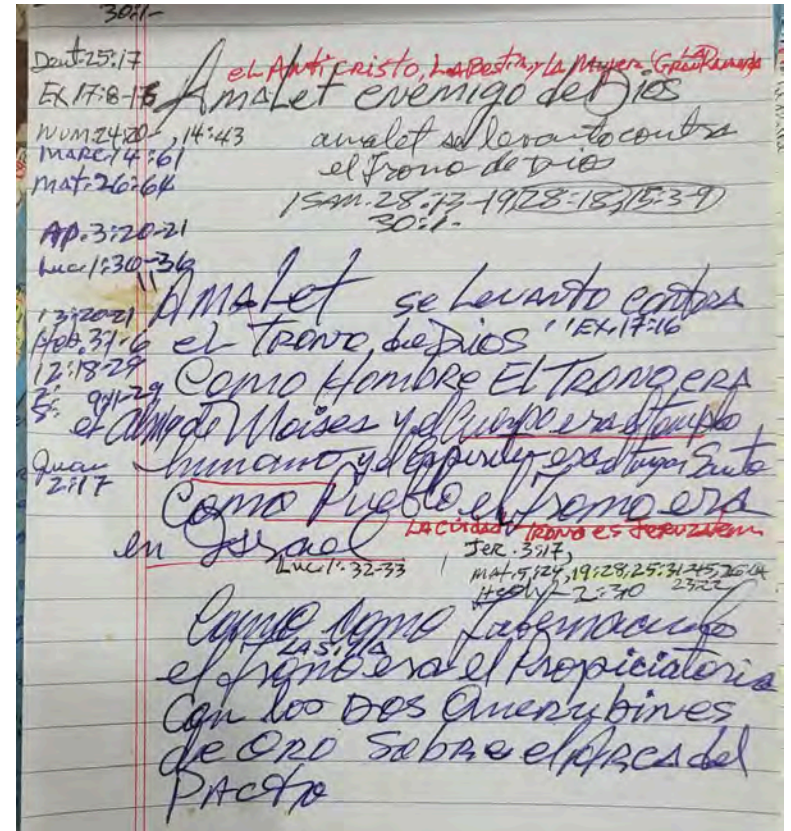 30:1-
Deut:25:17
EX.17:8-16
NUM:24:20-, 14:43
MARC.14:61
MAT:26:64
AP.3:20-21
Luc.1:30-36
13:20-21
Heb.3:1-6
12:18-29
9:11-29
Juan
2:17
el Anticristo, LA Bestia y la Mujer (LA Gran Ramera)
AMALET enemigo de Dios
amalet se levanto contra
el Trono de Dios
1 SAM. 28:13-19, 28:18, 15:3-9
30:1-
"AMALET se Levanto contra
el TRONO de Dios" EX.17:16
Como Hombre El TRONO ERA
el alma de Moises y el Cuerpo era el templo
humano y el espiritu era el lugar Santo
Como Pueblo el Trono era
LA CUIDAD TRONO es Jeruzalem
en Israel
Luc.1:32-33
Jer. 3:17,
MAT.5:34, 19:28, 25:31-45, 26:64
23:22
Hech. 2:30
Como Como Tabernaculo
LA SILLA
el trono era el Propiciatorio
Con los Dos Querubines
de ORO SobRe el ARCA del
PActo